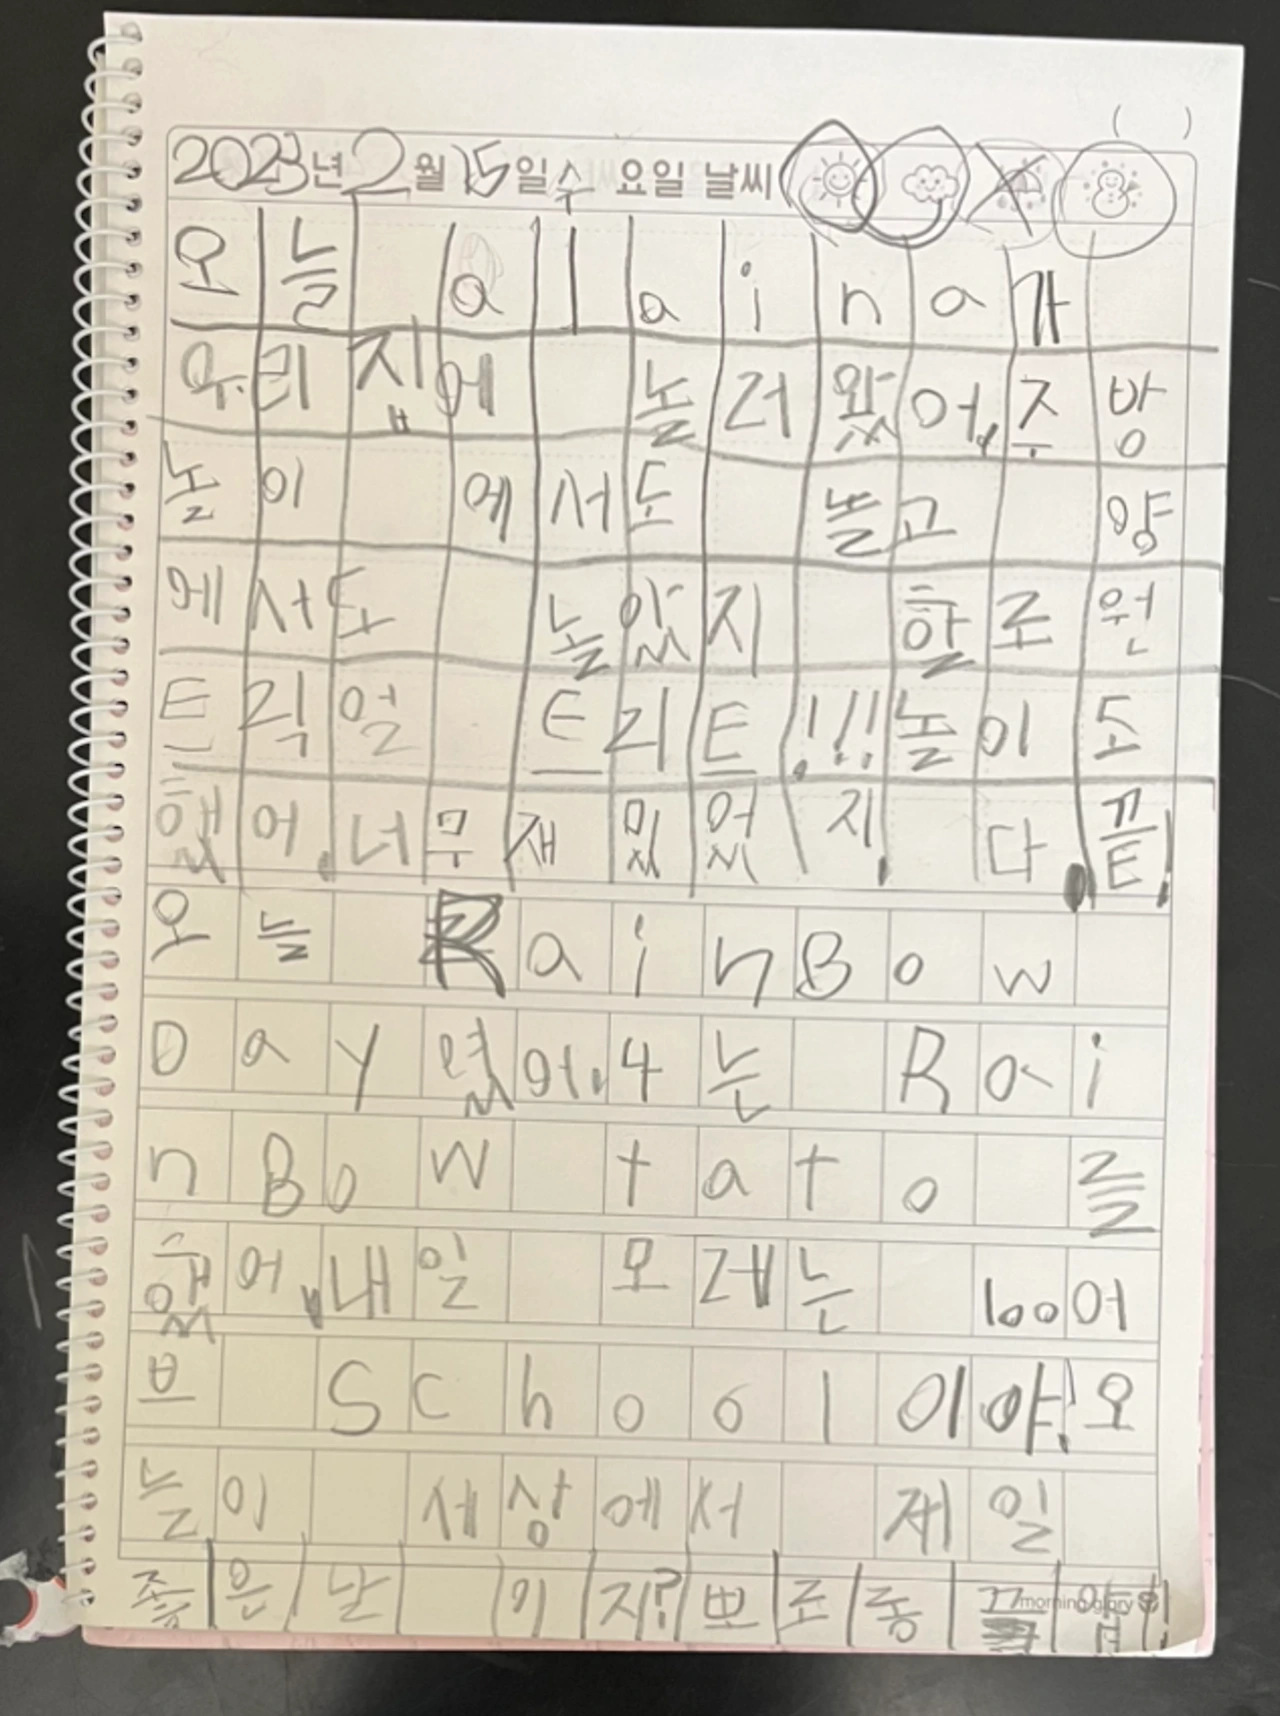 ( )
2023년 2월 15일 수 요일 날씨
오늘 alaina가
우리집에 놀러왔어.주방
놀이 에서도 놀고 양
에서도 놀았지 할로윈
트릭얼 트리트!!!놀이도
했어.너무재밌었지! 다.끝!
오늘 RainBow
Day였어.4는 Rai
nBow tato 를
했어.내일 모레는 100어
브 School이야!오
늘이 세상에서 제일
좋은날 이지?뽀로롱
morning glory